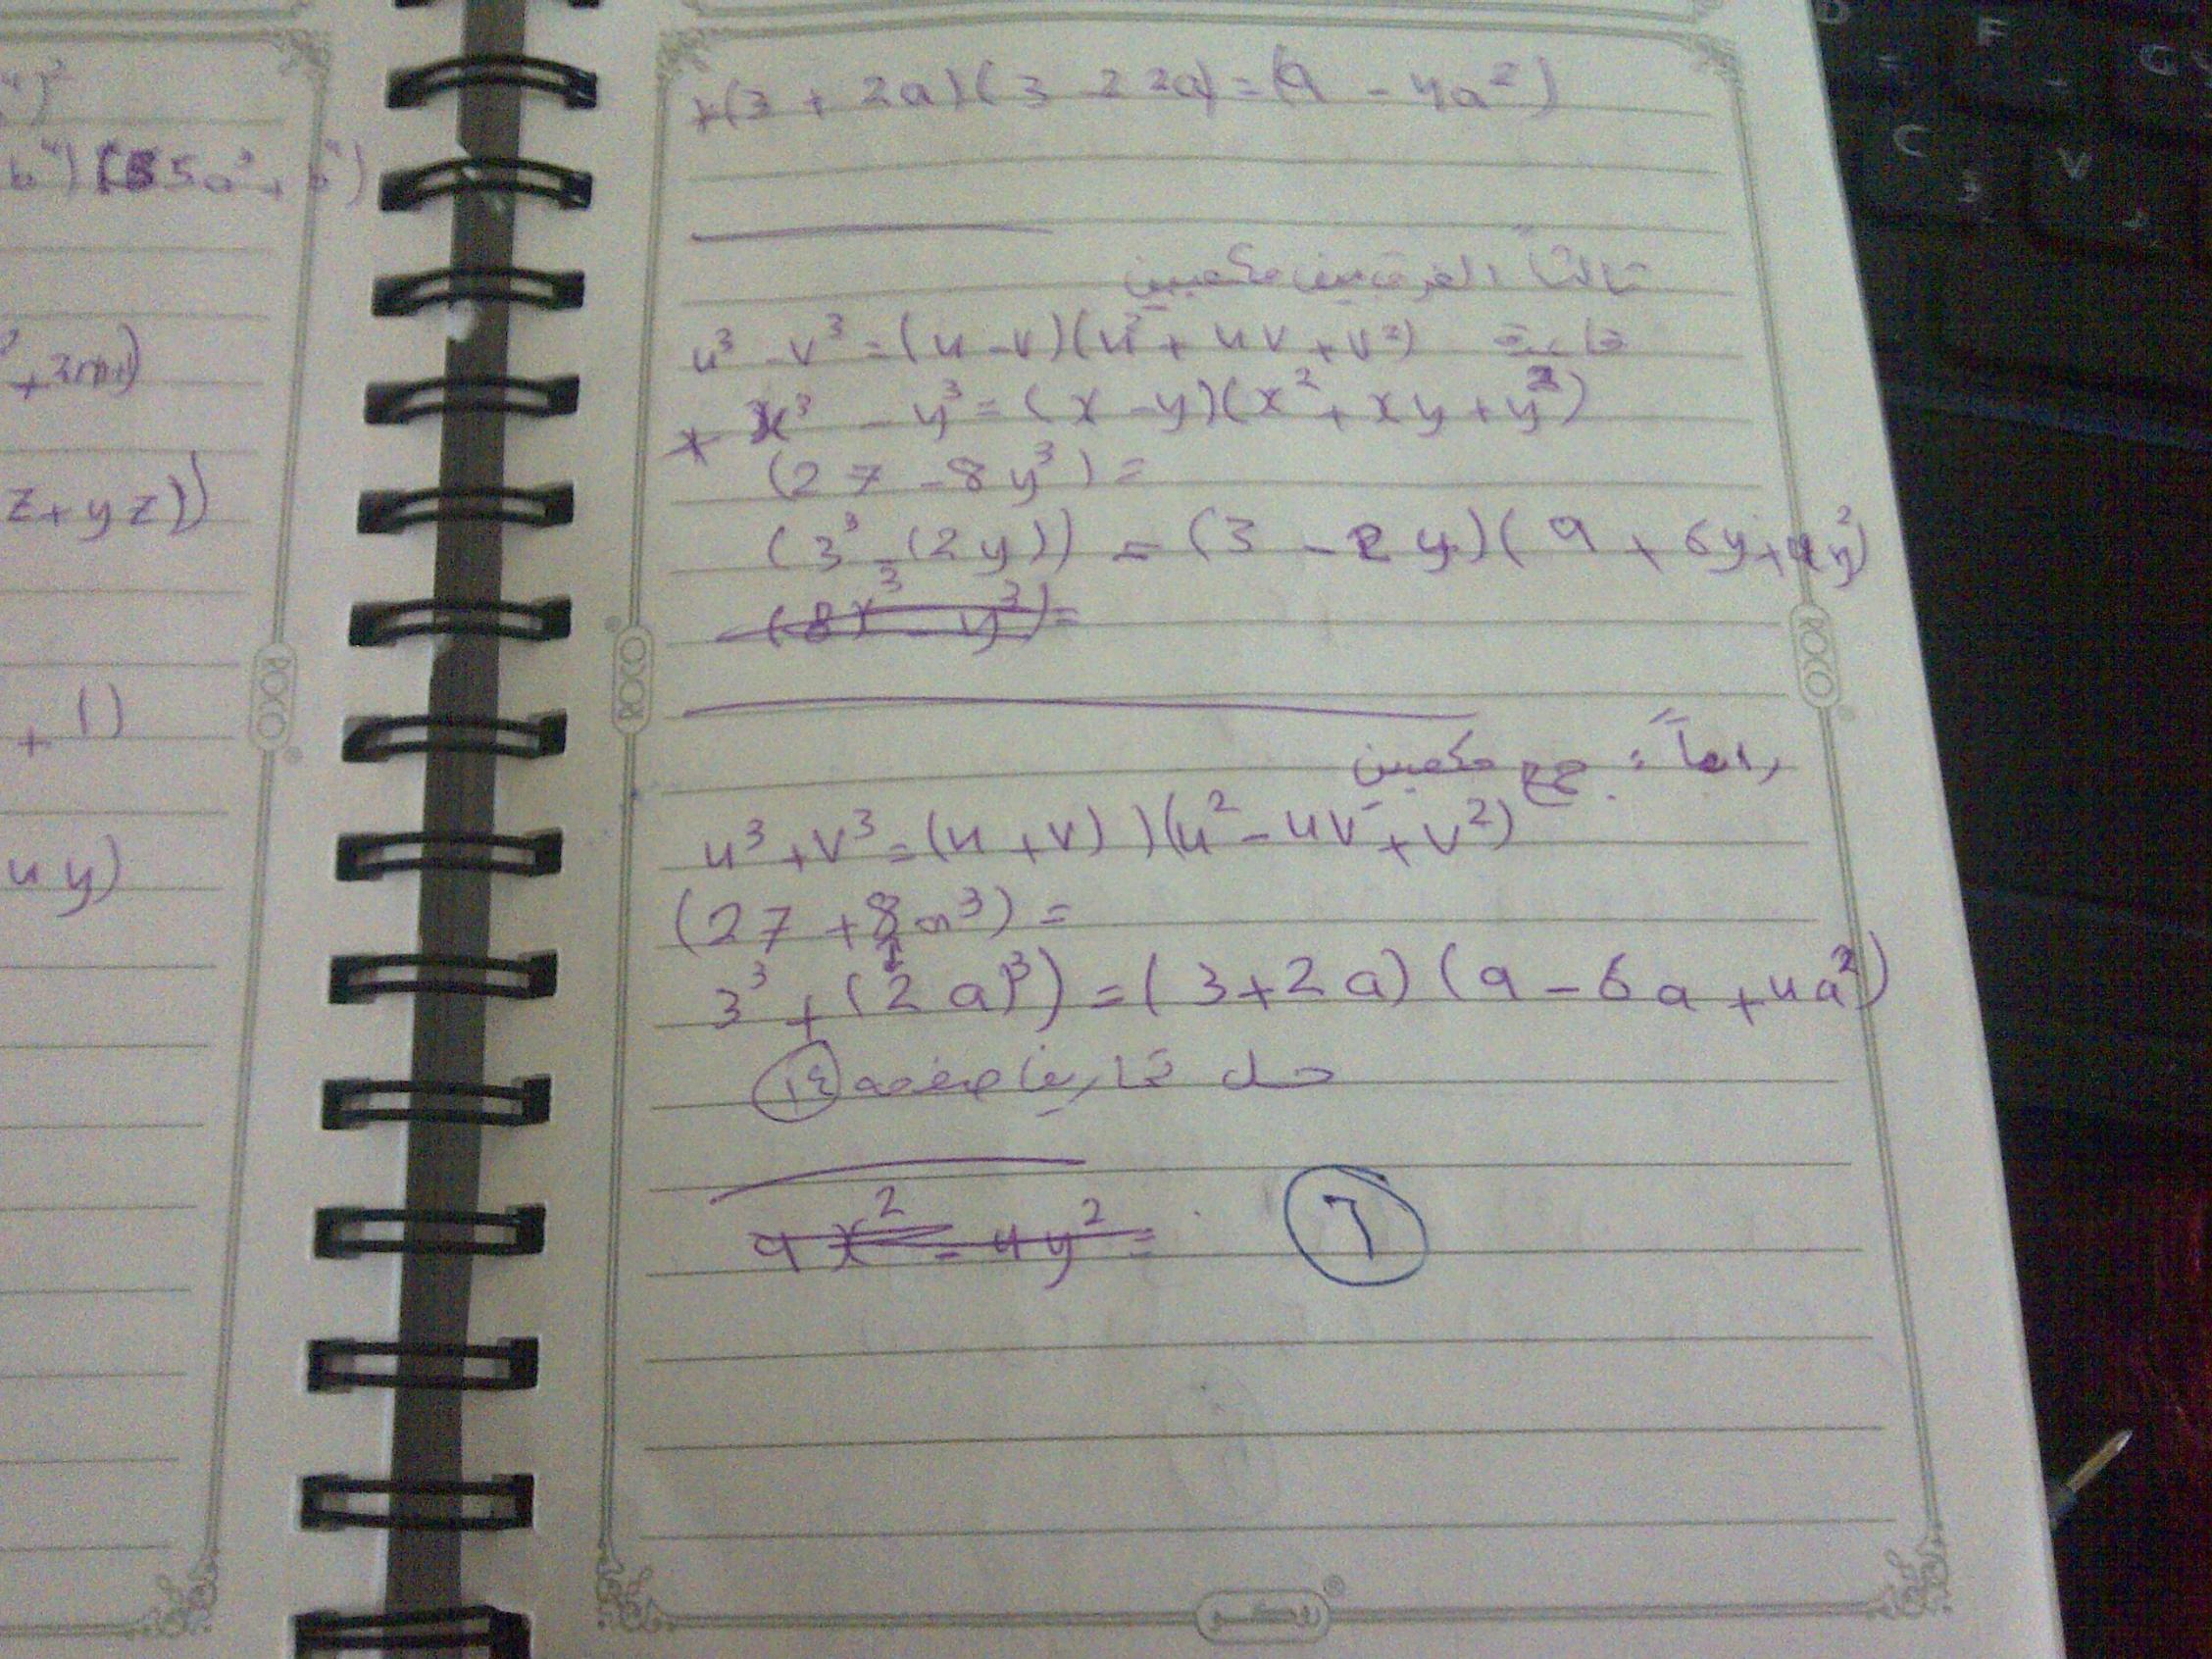 4)²
b⁴) (5a² + b⁴)
² + 2m1)
z + yz))
+ 1)
4y)
ROCO
+(3 + 2a)(3 - 2a) = (9 - 4a²)
ثالثاً الفرق بين مكعبين
u³ - v³ = (u - v)(u² + uv + v²)
+ x³ - y³ = (x - y)(x² + xy + y²)
(27 - 8y³) =
(3³ - (2y)³) = (3 - 2y)(9 + 6y + 4y²)
(8x³ - y³) =
ROCO
ROCO
رابعاً : جمع مكعبين
u³ + v³ = (u + v))(u² - uv + v²)
(27 + 8a³) =
3³ + (2a)³) = (3 + 2a)(9 - 6a + 4a²)
حل تمارين صفحه ١٤
9x² - 4y² =
٦
روكو
D F G
C V